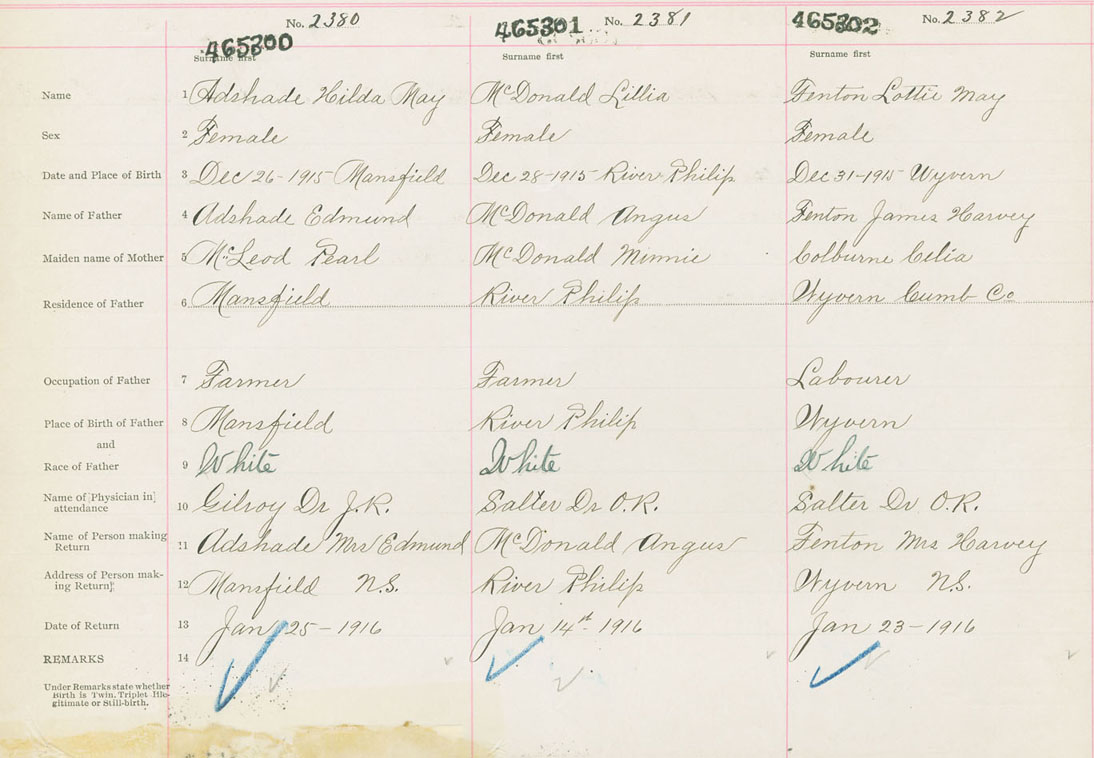 No. 2380 No. 2381 No. 2382
465300 465301 465302
Surname first Surname first Surname first
Name 1 Adshade Hilda May McDonald Lillia Fenton Lottie May
Sex 2 Female Female Female
Date and Place of Birth 3 Dec 26-1915 Mansfield Dec 28-1915 River Philip Dec 31-1915 Wyvern
Name of Father 4 Adshade Edmund McDonald Angus Fenton James Harvey
Maiden name of Mother 5 McLeod Pearl McDonald Minnie Colburne Celia
Residence of Father 6 Mansfield River Philip Wyvern Cumb Co
Occupation of Father 7 Farmer Farmer Labourer
Place of Birth of Father 8 Mansfield River Philip Wyvern
and
Race of Father 9 White White White
Name of [Physician in]
attendance 10 Gilroy Dr J.R. Salter Dr O.R. Salter Dr O.R.
Name of Person making
Return 11 Adshade Mrs Edmund McDonald Angus Fenton Mrs Harvey
Address of Person mak-
ing Return 12 Mansfield N.S. River Philip Wyvern N.S.
Date of Return 13 Jan 25-1916 Jan 14th-1916 Jan 23-1916
REMARKS 14
Under Remarks state whether
Birth is Twin. Triplet Ille-
gitimate or Still-birth.